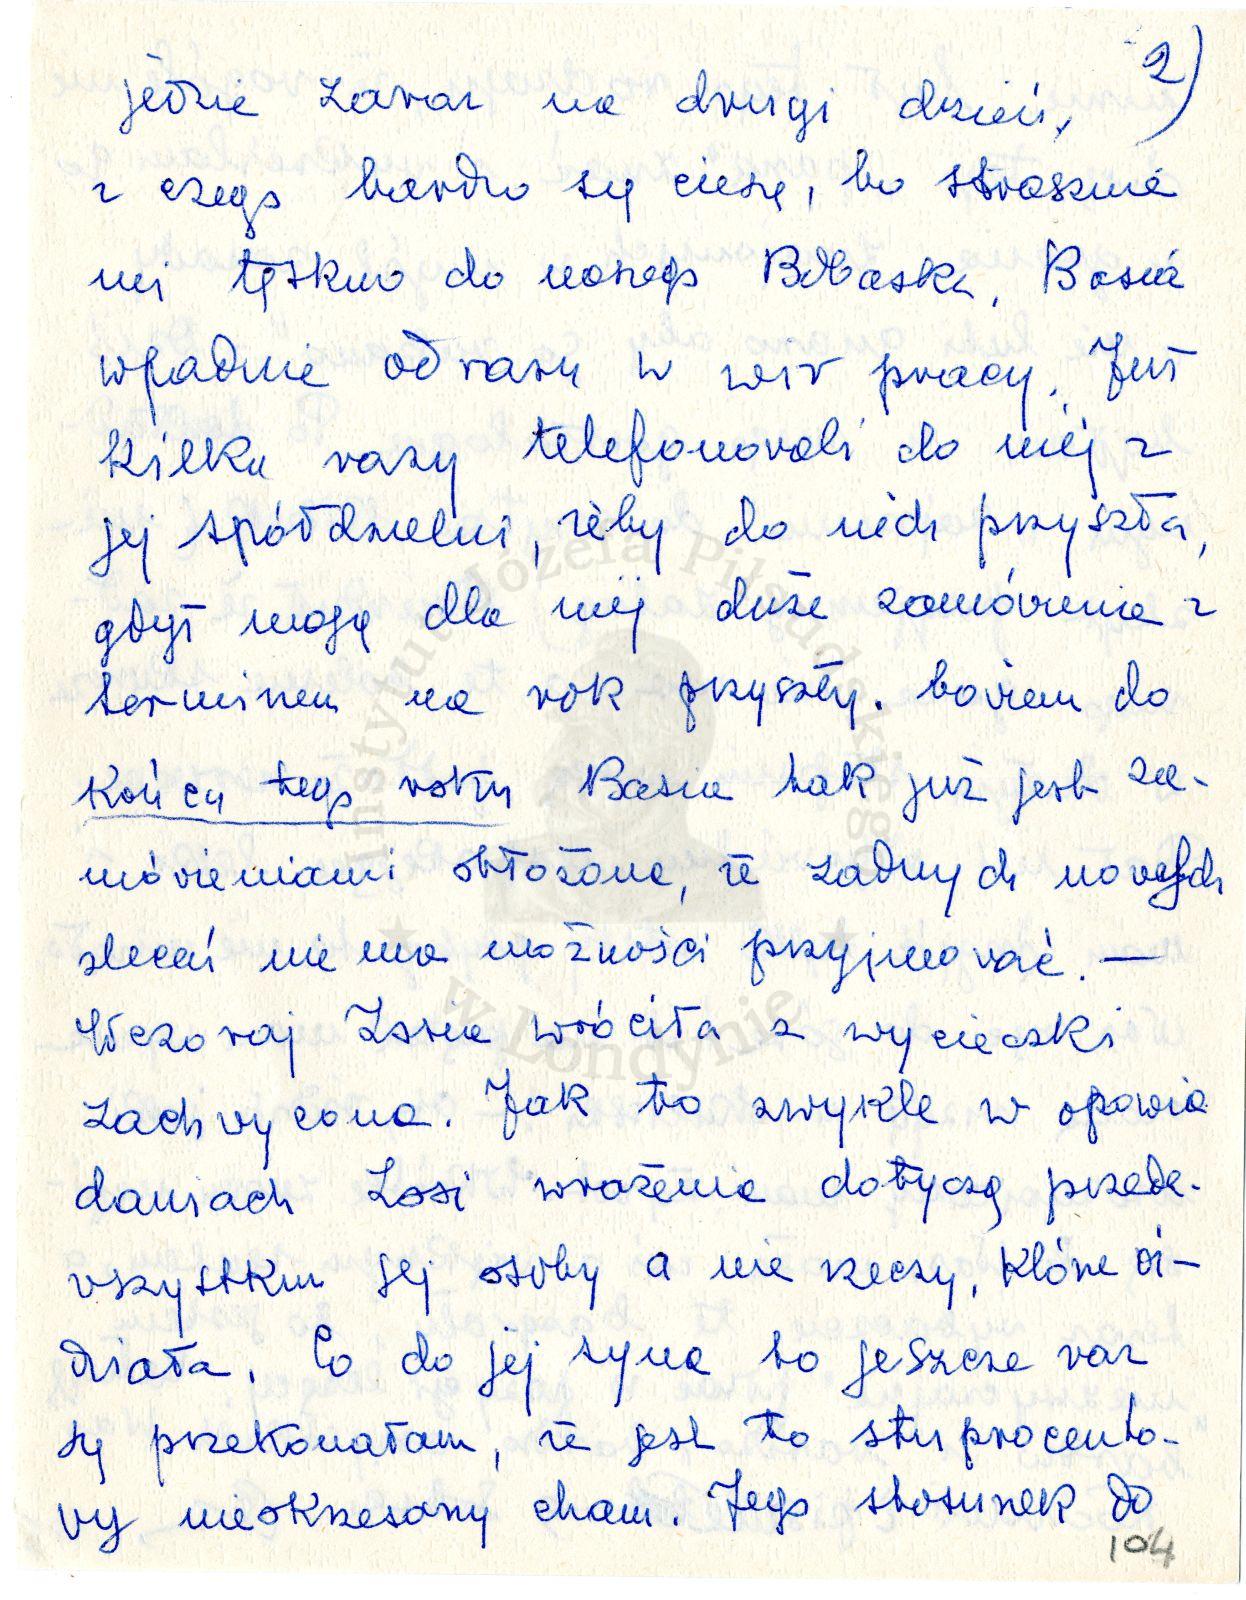 2)
jedzie zaraz na drugi dzień,
z czego bardzo się cieszę, bo strasznie
mi tęskno do naszego Bobaska. Basia
wpadnie od razu w wir pracy. Już
kilka razy telefonowali do niej z
jej spółdzielni, żeby do nich przyszła,
gdyż mają dla niej duże zamówienia z
terminem na rok przyszły. bowiem do
końca tego roku Basia tak już jest za-
mówieniami obłożona, że żadnych nowych
zleceń nie ma możności przyjmować. —
Wczoraj Zosia wróciła z wycieczki
zachwycona. Jak to zwykle w opowia
daniach Zosi wrażenia dotyczą przede-
wszystkim jej osoby a nie rzeczy, które wi-
działa. Co do jej syna to jeszcze raz
się przekonałam, że jest to stuprocento-
wy nieokrzesany cham. Jego stosunek do
104
Instytut Józefa Piłsudskiego
w Londynie